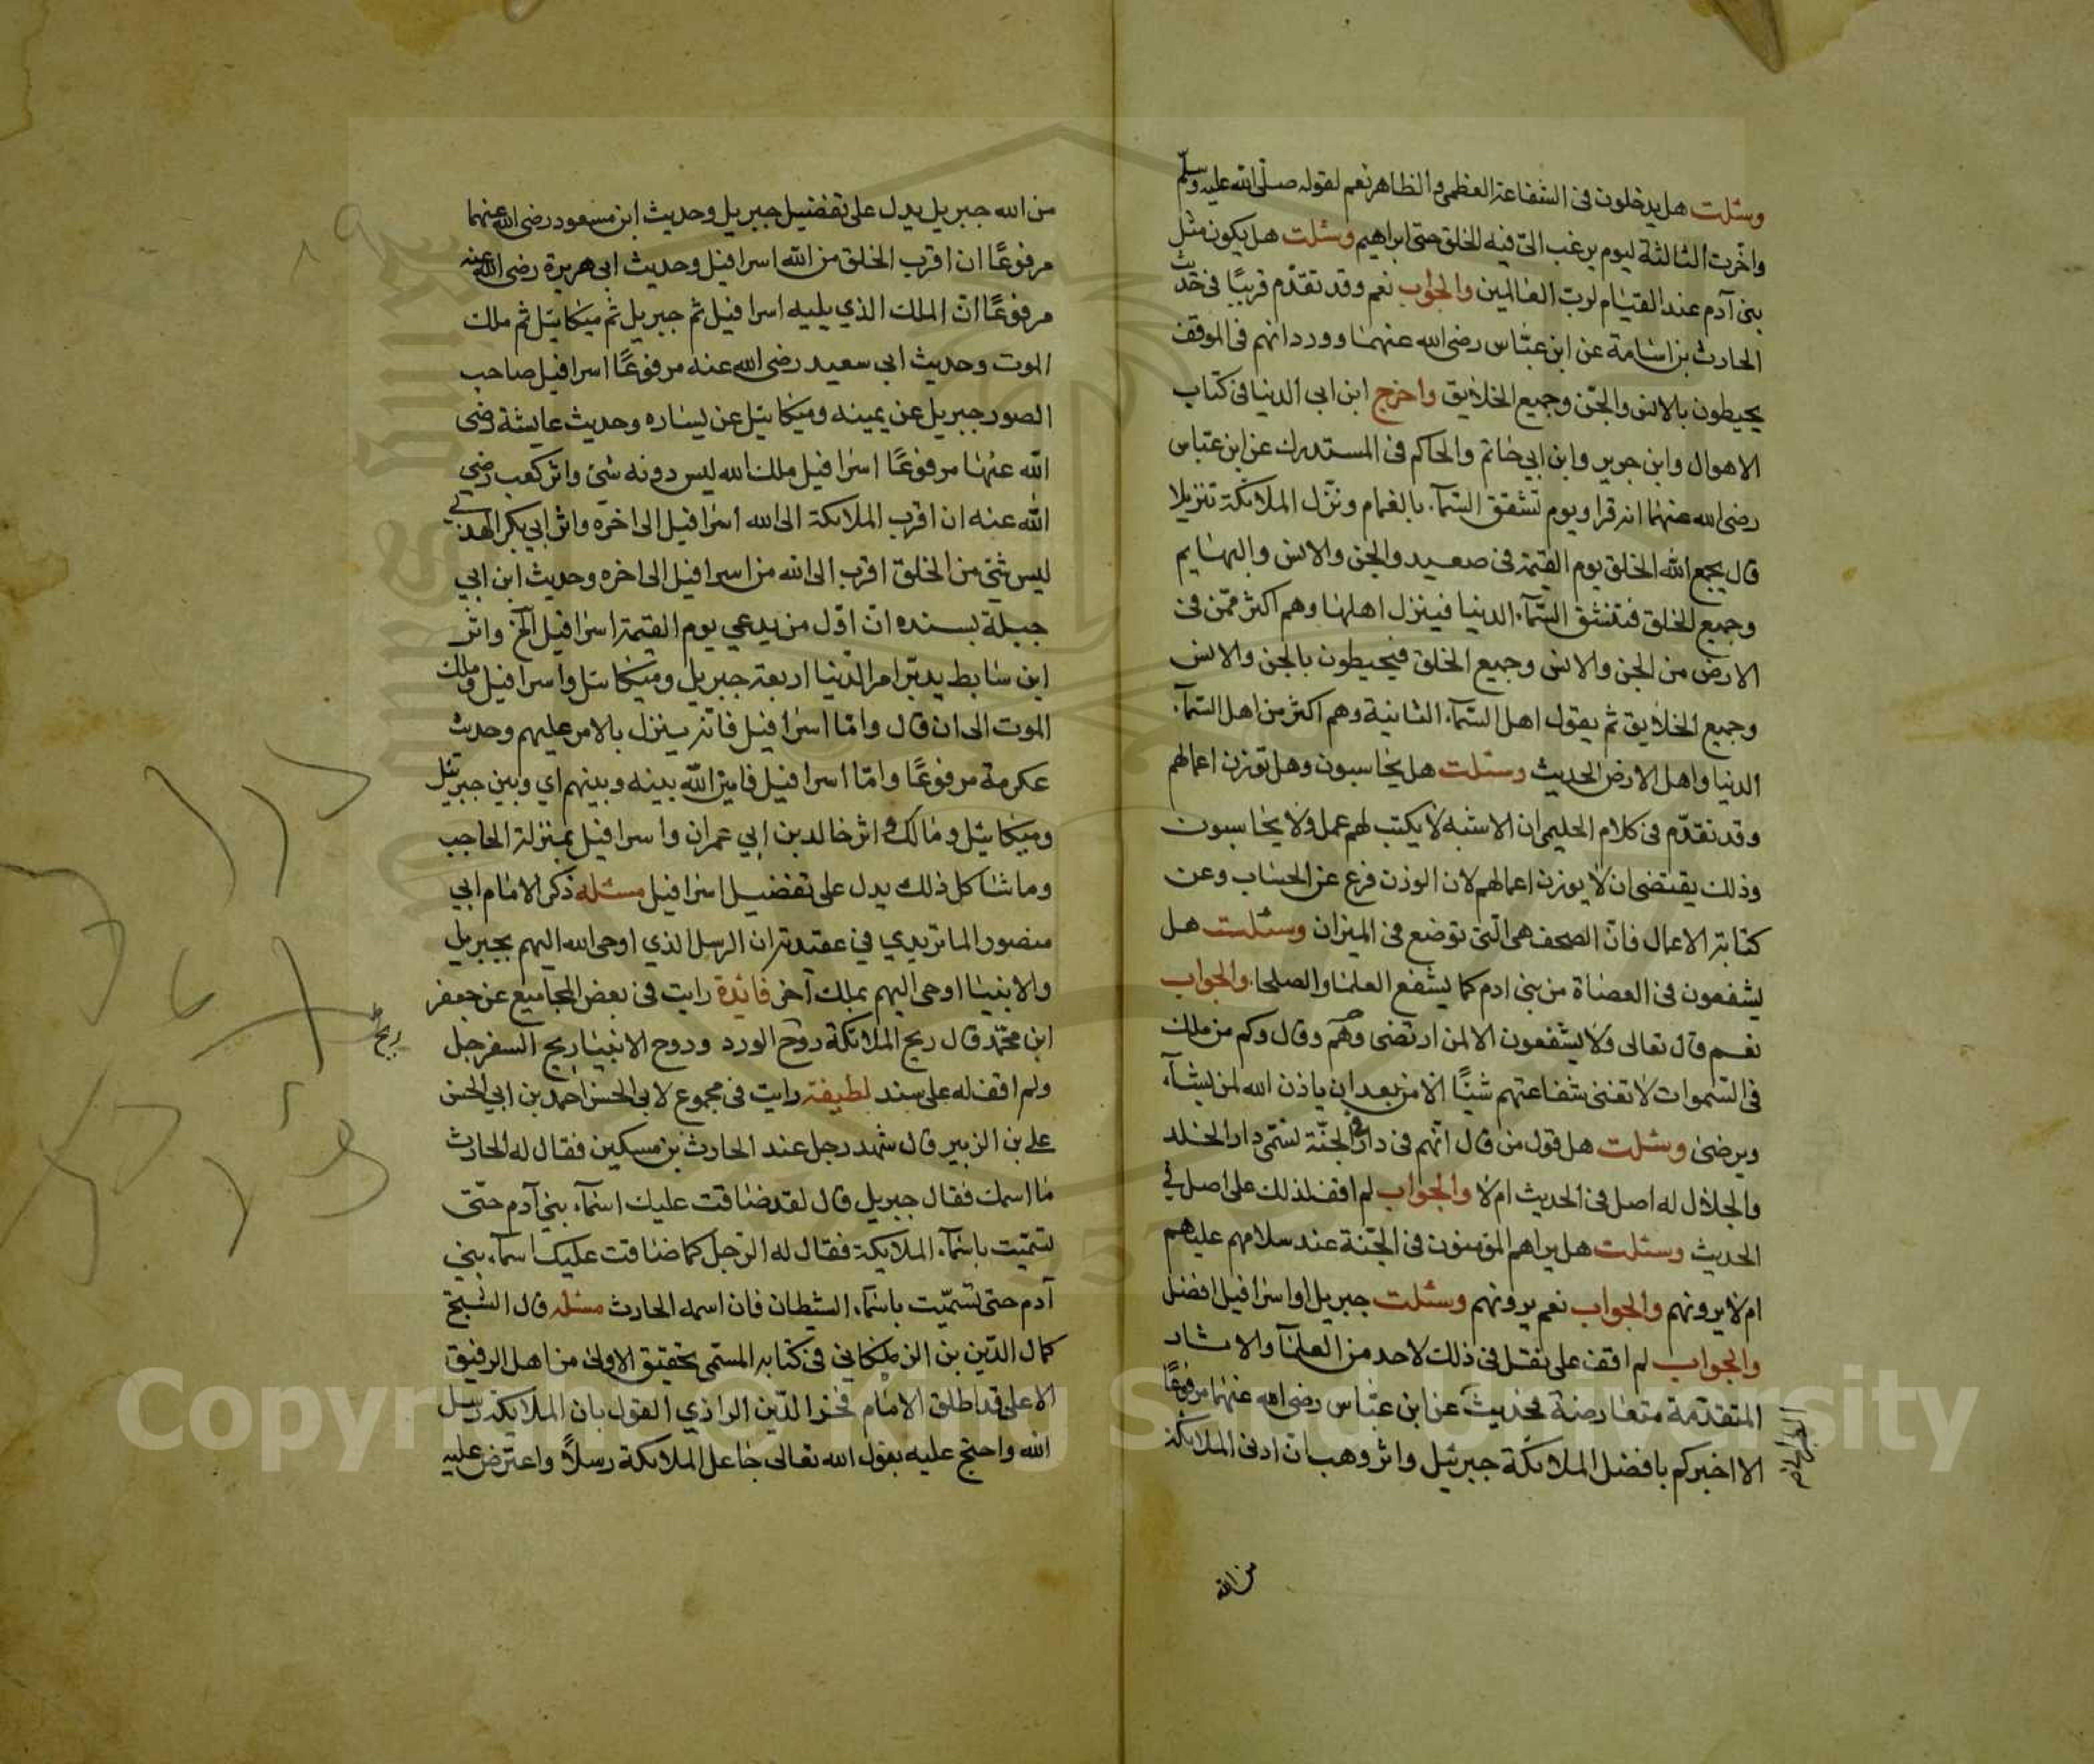 وسئلت هل يدخلون في الشفاعة العظمى والظاهر نعم لقوله صلى الله عليه وسلم
واخّرت الثالثة ليوم يرغب اليّ فيه الخلق حتى ابراهيم وسئلت هل يكون مثل
بنى آدم عند القيام لرب العالمين والجواب نعم وقد تقدّم قريبًا في حديث
الحارث بن اسامة عن ابن عبّاس رضى الله عنهما وورد انهم في الموقف
يحيطون بالانس والجنّ وجميع الخلايق واخرج ابن ابى الدنيا في كتاب
الاهوال وابن جرير وابن ابي حاتم والحاكم في المستدرك عن ابن عبّاس
رضى الله عنهما انه قرا ويوم تشقق السّمآء بالغمام ونزّل الملائكة تنزيلا
قال يجمع الله الخلق يوم القيمة في صعيد والجن والانس والبهايم
وجميع الخلق فتنشق السّمآء الدنيا فينزل اهلها وهم اكثر ممّن في
الارض من الجن والانس وجميع الخلق فيحيطون بالجن والانس
وجميع الخلايق ثم يقول اهل السّمآء الثانية وهم اكثر من اهل السّمآء
الدنيا واهل الارض الحديث وسئلت هل يحاسبون وهل توزن اعمالهم
وقد تقدّم في كلام الحليمى ان الاشبه لا يكتب لهم عمل ولا يحاسبون
وذلك يقتضى ان لا يوزن اعمالهم لان الوزن فرع عن الحساب وعن
كتابة الاعمال فانّ الصحف هى التى توضع في الميزان وسئلت هل
يشفعون في العصاة من بني ادم كما يشفع العلما والصلحا والجواب
نعم قال تعالى ولا يشفعون الا لمن ارتضى وهم وقال وكم من ملك
في السّموات لا تغنى شفاعتهم شيئًا الا من بعد ان ياذن الله لمن يشآء
ويرضى وسئلت هل قول من قال انّهم في دار في الجنّة تسمّى دار الخلد
والجلال له اصل في الحديث ام لا والجواب لم اقف لذلك على اصل في
الحديث وسئلت هل يراهم المؤمنون في الجنة عند سلامهم عليهم
ام لا يرونهم والجواب نعم يرونهم وسئلت جبريل او اسرافيل افضل
والجواب لم اقف على نقل في ذلك لاحد من العلمآ والاثار
المتقدمة متعارضة فحديث عن ابن عبّاس رضى الله عنهما مرفوعًا
الا اخبركم بافضل الملائكة جبرئيل واثر وهب ان ادنى الملائكة
من الله
من الله جبريل يدل على تفضيل جبريل وحديث ابن مسعود رضى الله عنهما
مرفوعًا ان اقرب الخلق من الله اسرافيل وحديث ابى هريرة رضى الله عنه
مرفوعًا انّ الملك الذي يليه اسرافيل ثم جبريل ثم ميكائيل ثم ملك
الموت وحديث ابى سعيد رضى الله عنه مرفوعًا اسرافيل صاحب
الصور جبريل عن يمينه وميكائيل عن يساره وحديث عايشة رضى
الله عنها مرفوعًا اسرافيل ملك الله ليس دونه شئ واثر كعب رضي
الله عنه ان اقرب الملائكة الى الله اسرافيل الى اخره واثر ابي بكر الهذلي
ليس شئ من الخلق اقرب الى الله من اسرافيل الى اخره وحديث ابن ابي
جبلة بسنده انّ اوّل من يدعي يوم القيمة اسرافيل الخ واثر
ابن سابط يدبّر امر الدّنيا اربعة جبريل وميكائيل واسرافيل وملك
الموت الى ان قال وامّا اسرافيل فانّه ينزل بالامر عليهم وحديث
عكرمة مرفوعًا وامّا اسرافيل فامين الله بينه وبينهم اي وبين جبرئيل
وميكائيل ومالك واثر خالد بن ابي عمران واسرافيل بمنزلة الحاجب
وما شاكل ذلك يدل على تفضيل اسرافيل مسئله ذكر الامام ابي
منصور الماتريدي في عقيدته ان الرسل الذي اوحى الله اليهم بجبريل
والانبيا اوحى اليهم بملك آخر فائدة رايت في بعض المجاميع عن جعفر
ابن محمّد قال ريح الملائكة روح الورد وروح الانبيا ريح السفرجل
ريح
ولم اقف له على سند لطيفة رايت في مجموع لابي الحسن احمد بن ابي الحسن
علي بن الزبير قال شهد رجل عند الحارث بن مسكين فقال له الحارث
ما اسمك فقال جبريل قال لقد ضاقت عليك اسمآء بني آدم حتّى
تسمّيت باسمآء الملايكة فقال له الرّجل كما ضاقت عليك اسمآء بني
آدم حتى تسمّيت باسمآء الشيطان فان اسمه الحارث مسئله قال الشيخ
كمال الدّين بن الزملكاني في كتابه المسمّى بتحقيق الاولى من اهل الرفيق
الاعلى قد اطلق الامام فخر الدّين الرازي القول بان الملايكة رسل
الله واحتج عليه بقول الله تعالى جاعل الملائكة رسلاً واعترض عليه
Copyright © King Saud University